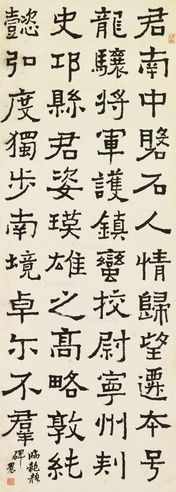 君南中磐石人情歸望遷本号
龍驤將軍護鎮蠻校尉寧州刾
史邛縣君姿瑛雄之高略敦純
懿弘度獨步南境卓尔不羣